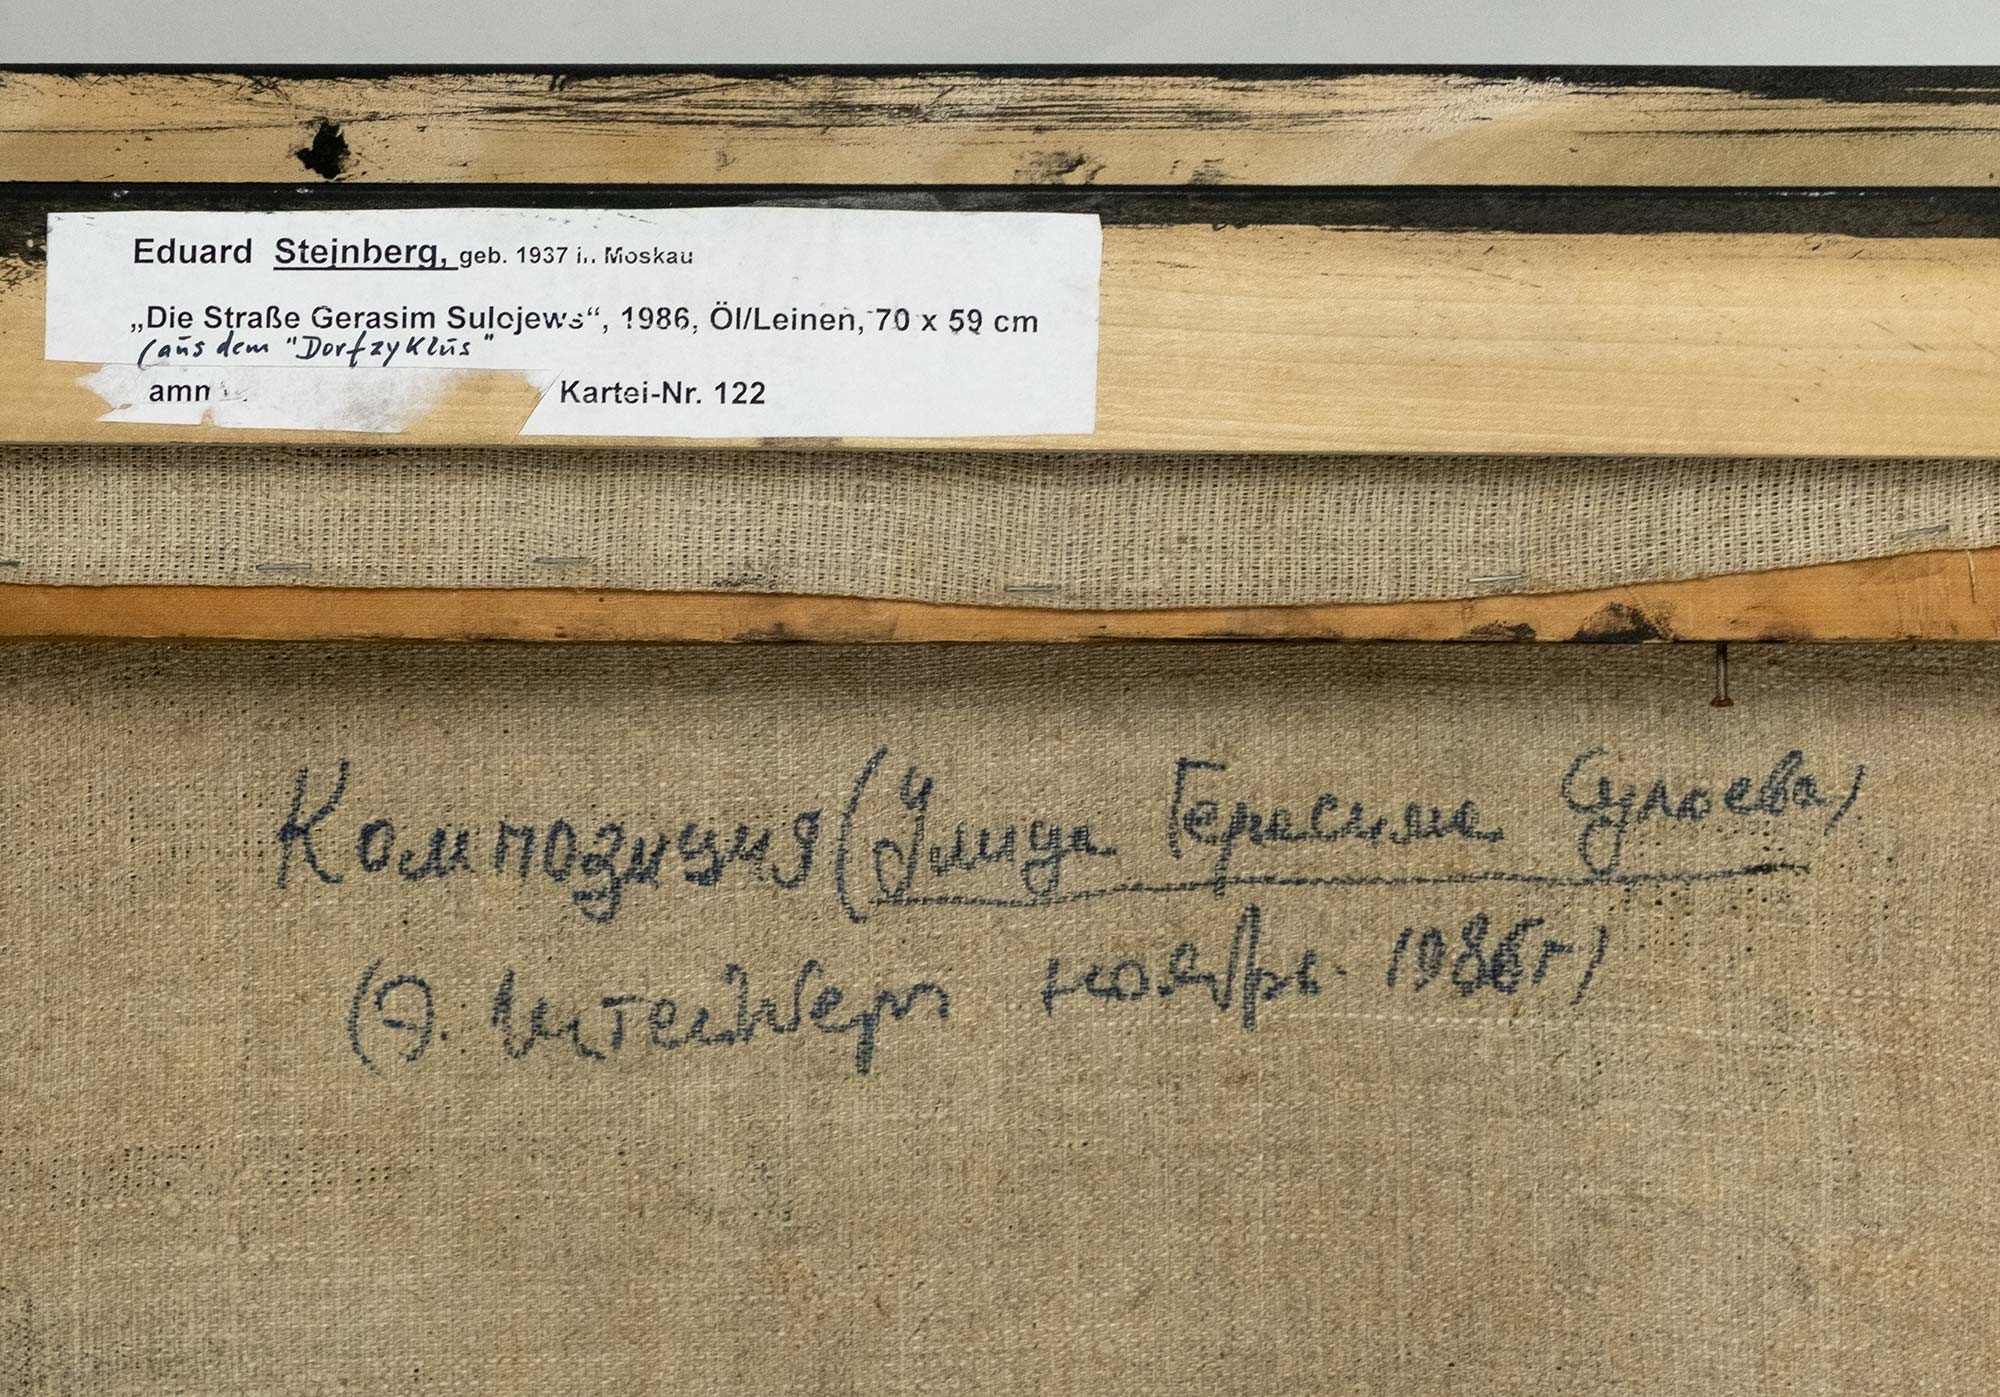 Eduard Steinberg, geb. 1937 in Moskau
„Die Straße Gerasim Sulojews“, 1986, Öl/Leinen, 70 x 59 cm
(aus dem "Dorfzyklus"
Kartei-Nr. 122
Композиция (Улица Герасима Сулоева)
(Э. Штейнберг ноябрь 1986г)